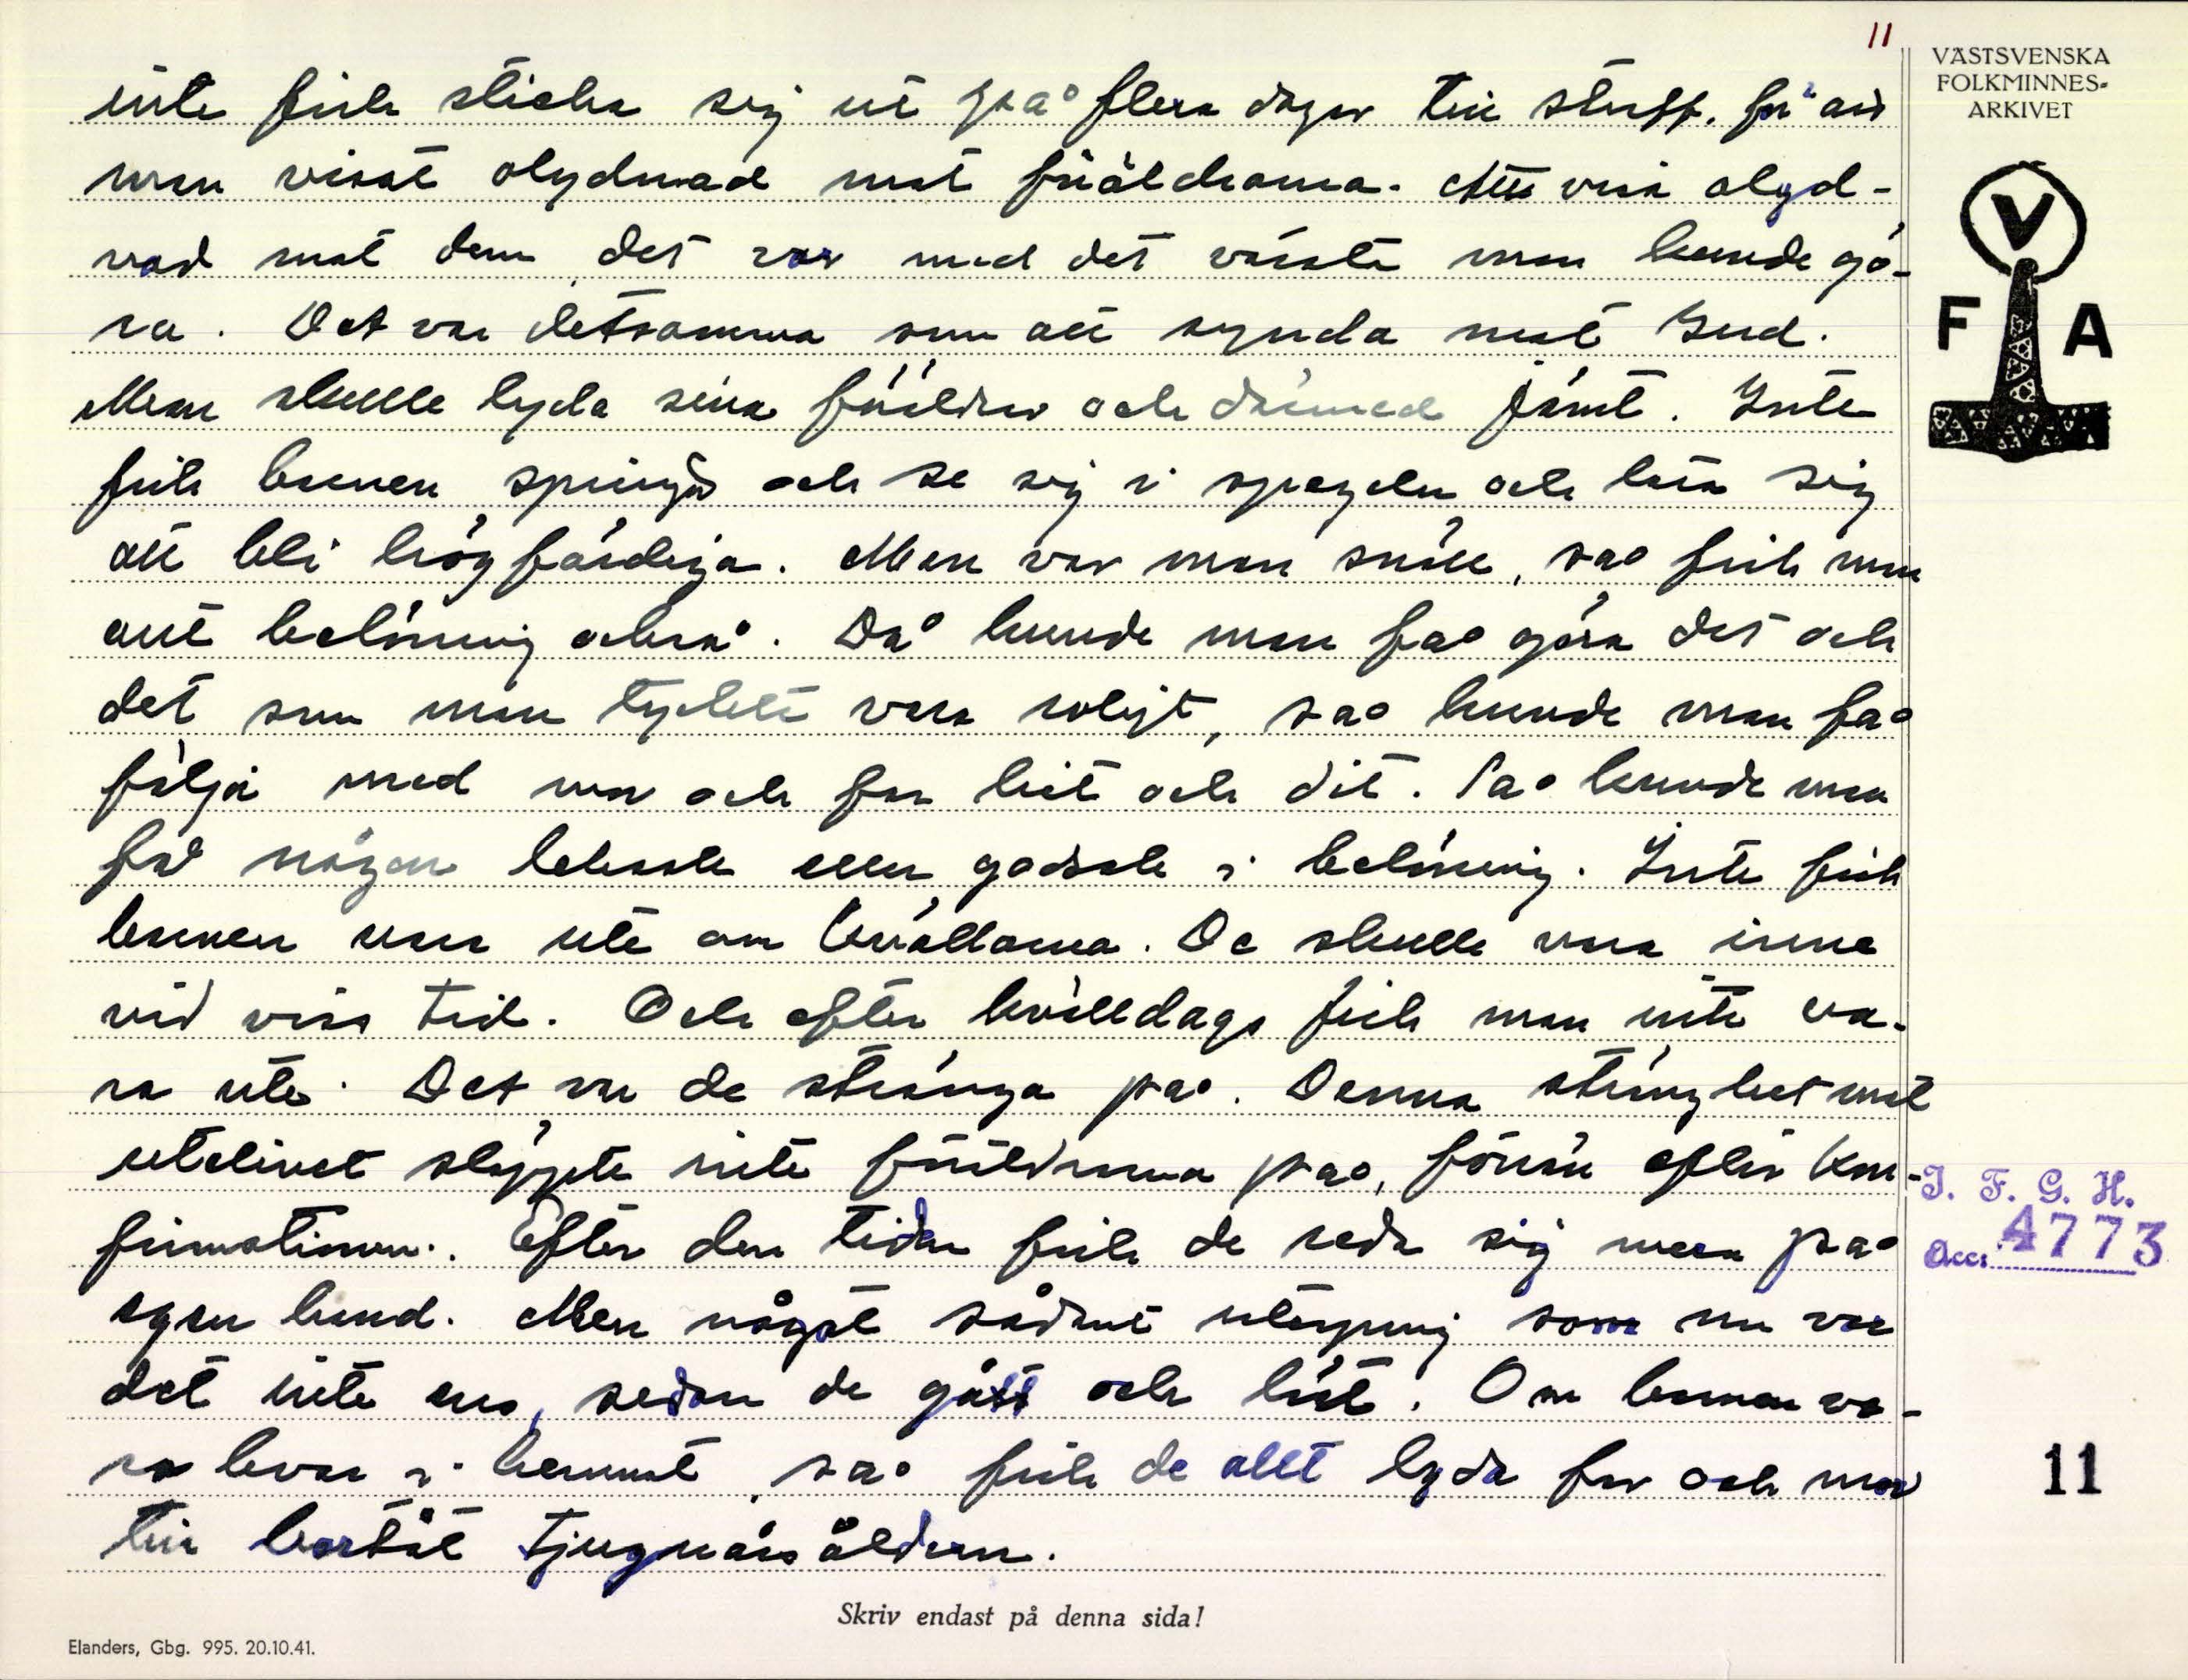 11
VÄSTSVENSKA
FOLKMINNES-
ARKIVET
V
F A
inte fick sticka sig ut på flera dagar till straff, för att
man visat olydnad mot föräldrarna. Att visa olyd-
nad mot dem, det var med det värsta man kunde gö-
ra. Det var detsamma som att synda mot Gud.
Man skulle lyda sina föräldrar och därmed jämt. Inte
fick barnen springa och se sig i spegeln och lära sig
att bli högfärdiga. Men var man snäll, så fick man
allt belöning också. Då kunde man få göra det och
det som man tyckte vara roligt, så kunde man få
följa med mor och far hit och dit. Så kunde man
få någon leksak eller godsak i belöning. Inte fick
barnen vara ute om kvällarna. De skulle vara inne
vid viss tid. Och efter kvälldags fick man inte va-
ra ute. Det var de stränga på. Denna stränghet mot
utelivet släppte inte föräldrarna på, förrän efter kon-
firmationen. Efter den tiden fick de reda sig mera på
egen hand. Men något sådant utespring som nu var
det inte ens, sedan de gått och läst. Om barnen vo-
ro kvar i hemmet, så fick de allt lyda far och mor
till bortåt tjuguårsåldern.
I. F. G. H.
Acc: 4773
11
Skriv endast på denna sida!
Elanders, Gbg. 995. 20.10.41.